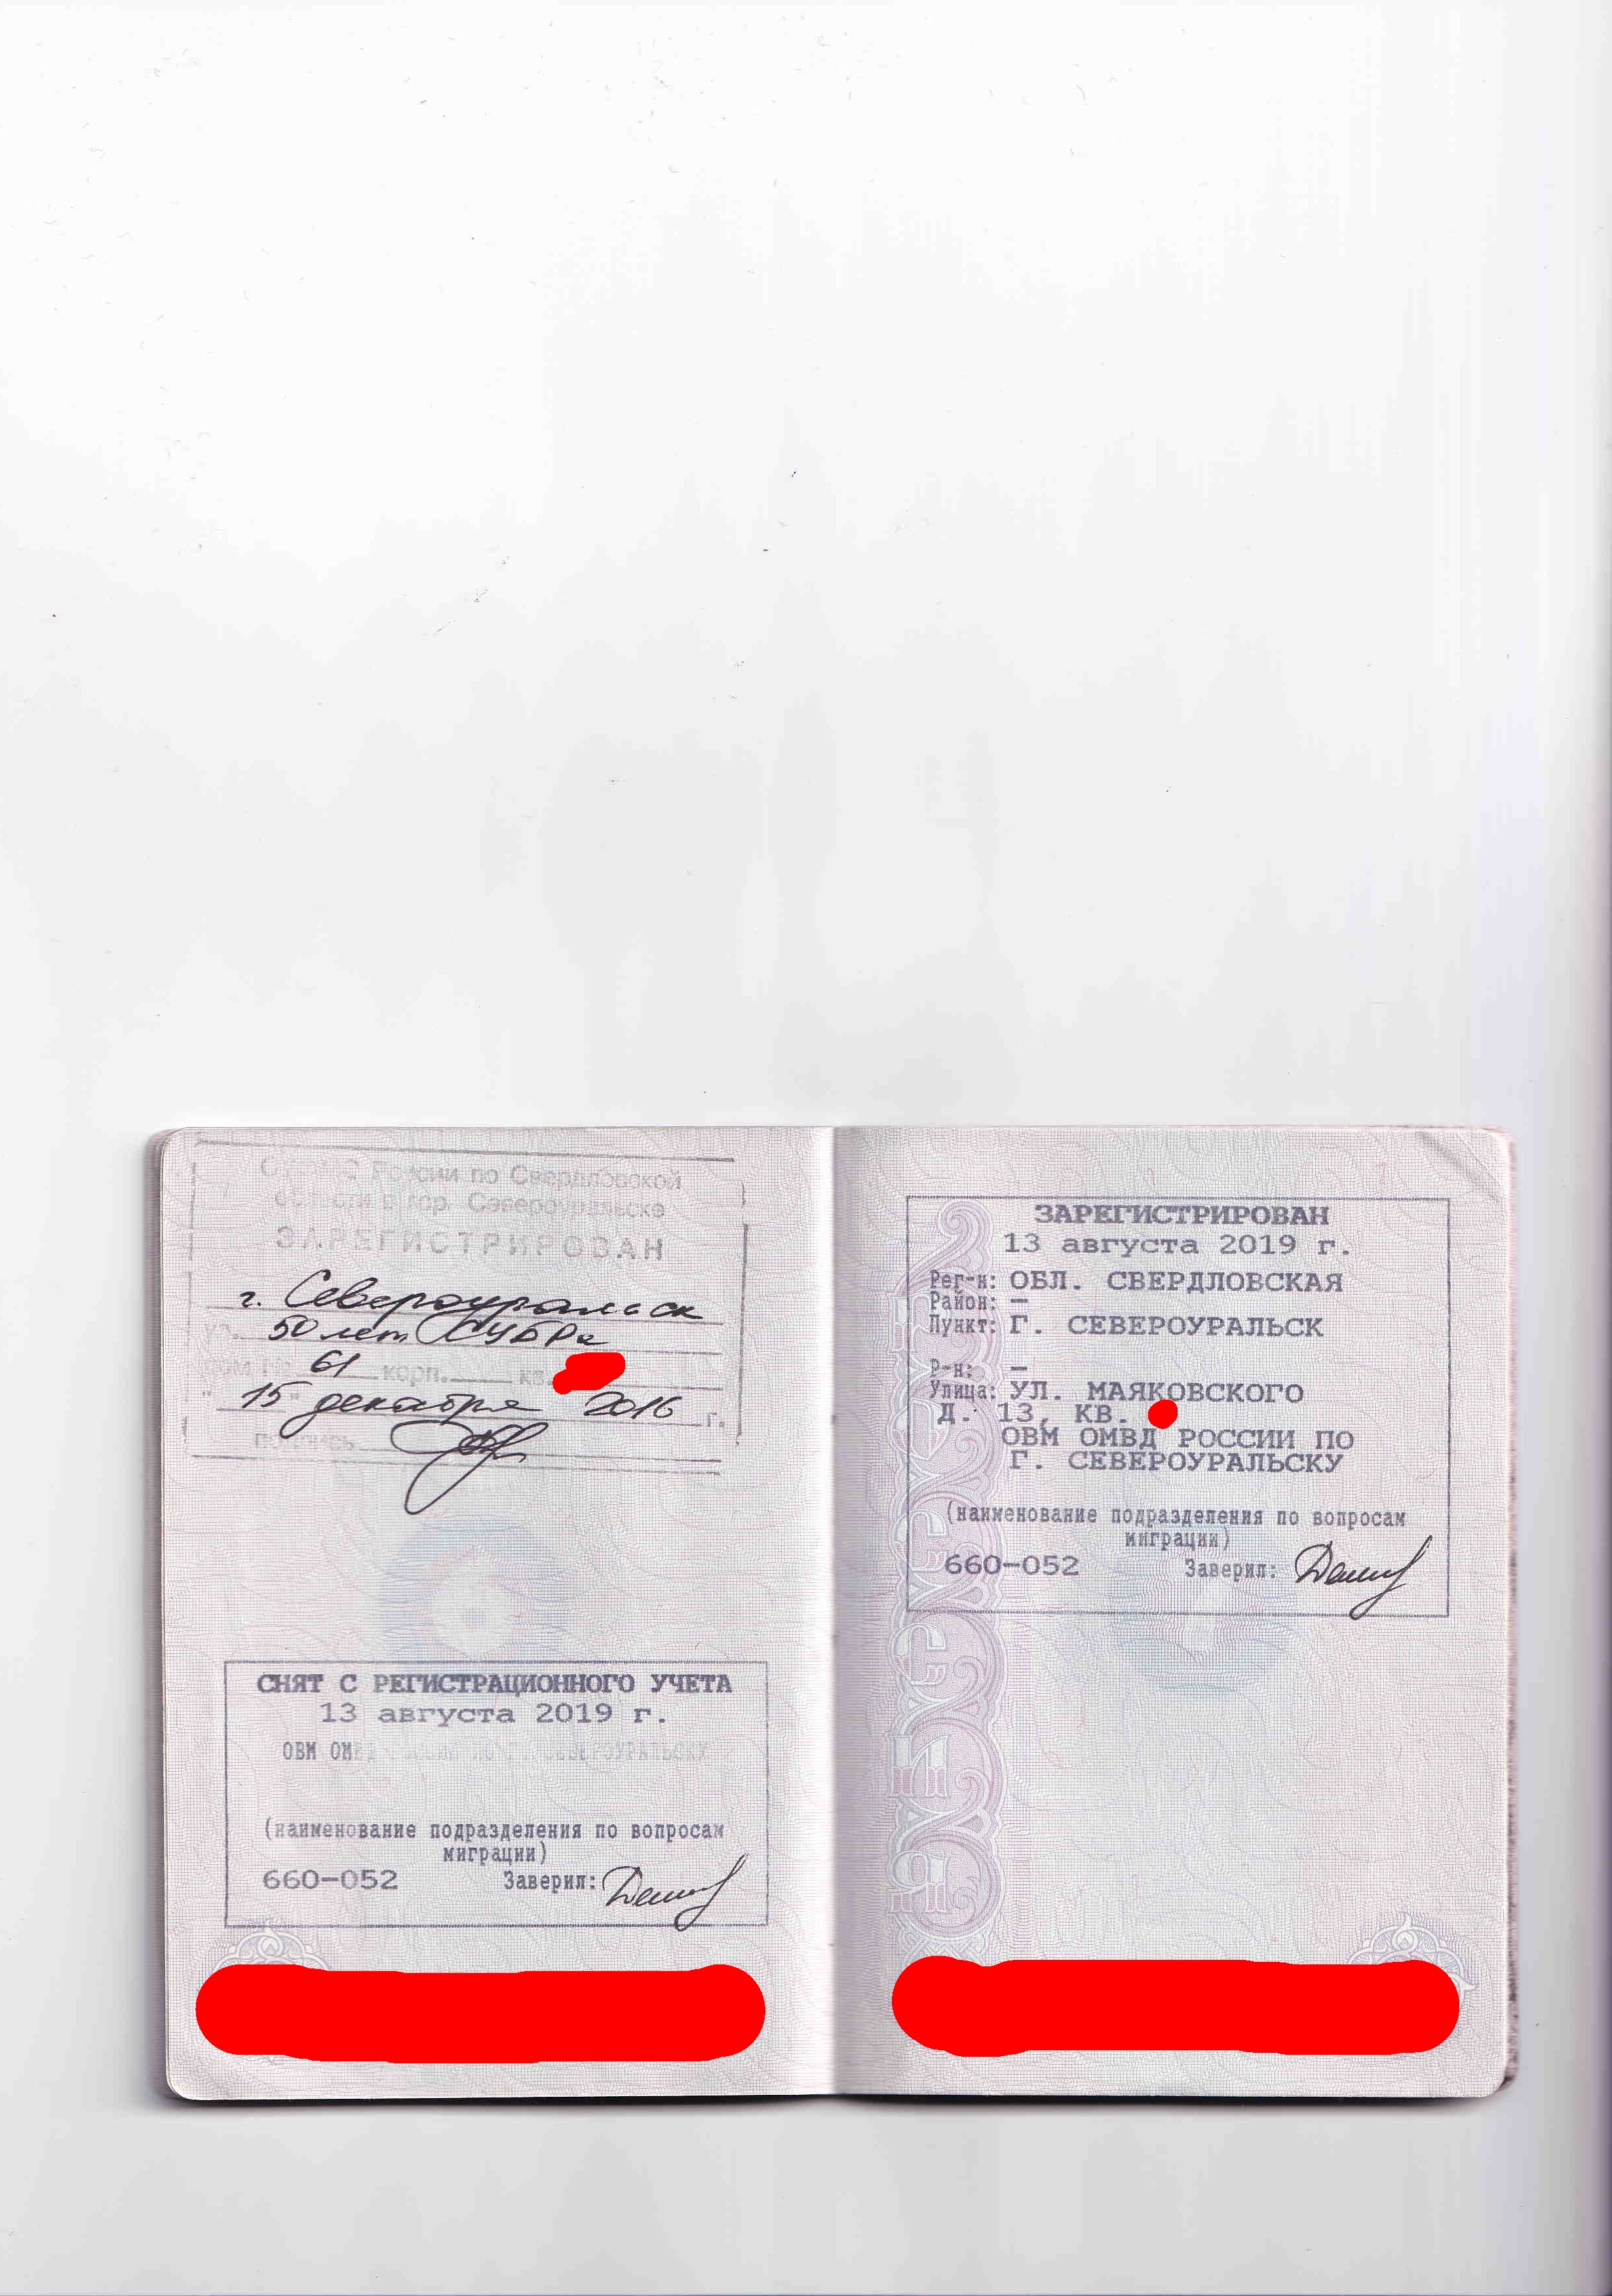 России по Свердловской
области в гор. Североуральске
ЗАРЕГИСТРИРОВАН
г. Североуральск
ул. 50 лет СУБРа
дом № 61 корп. кв.
" 15 " декабря 2016 г.
подпись
СНЯТ С РЕГИСТРАЦИОННОГО УЧЕТА
13 августа 2019 г.
ОВМ ОМВД РОССИИ ПО Г. СЕВЕРОУРАЛЬСКУ
(наименование подразделения по вопросам
миграции)
660-052 Заверил:
ЗАРЕГИСТРИРОВАН
13 августа 2019 г.
Рег-н: ОБЛ. СВЕРДЛОВСКАЯ
Район: –
Пункт: Г. СЕВЕРОУРАЛЬСК
Р-н: –
Улица: УЛ. МАЯКОВСКОГО
Д. 13, КВ.
ОВМ ОМВД РОССИИ ПО
Г. СЕВЕРОУРАЛЬСКУ
(наименование подразделения по вопросам
миграции)
660-052 Заверил:
РОССИЯ